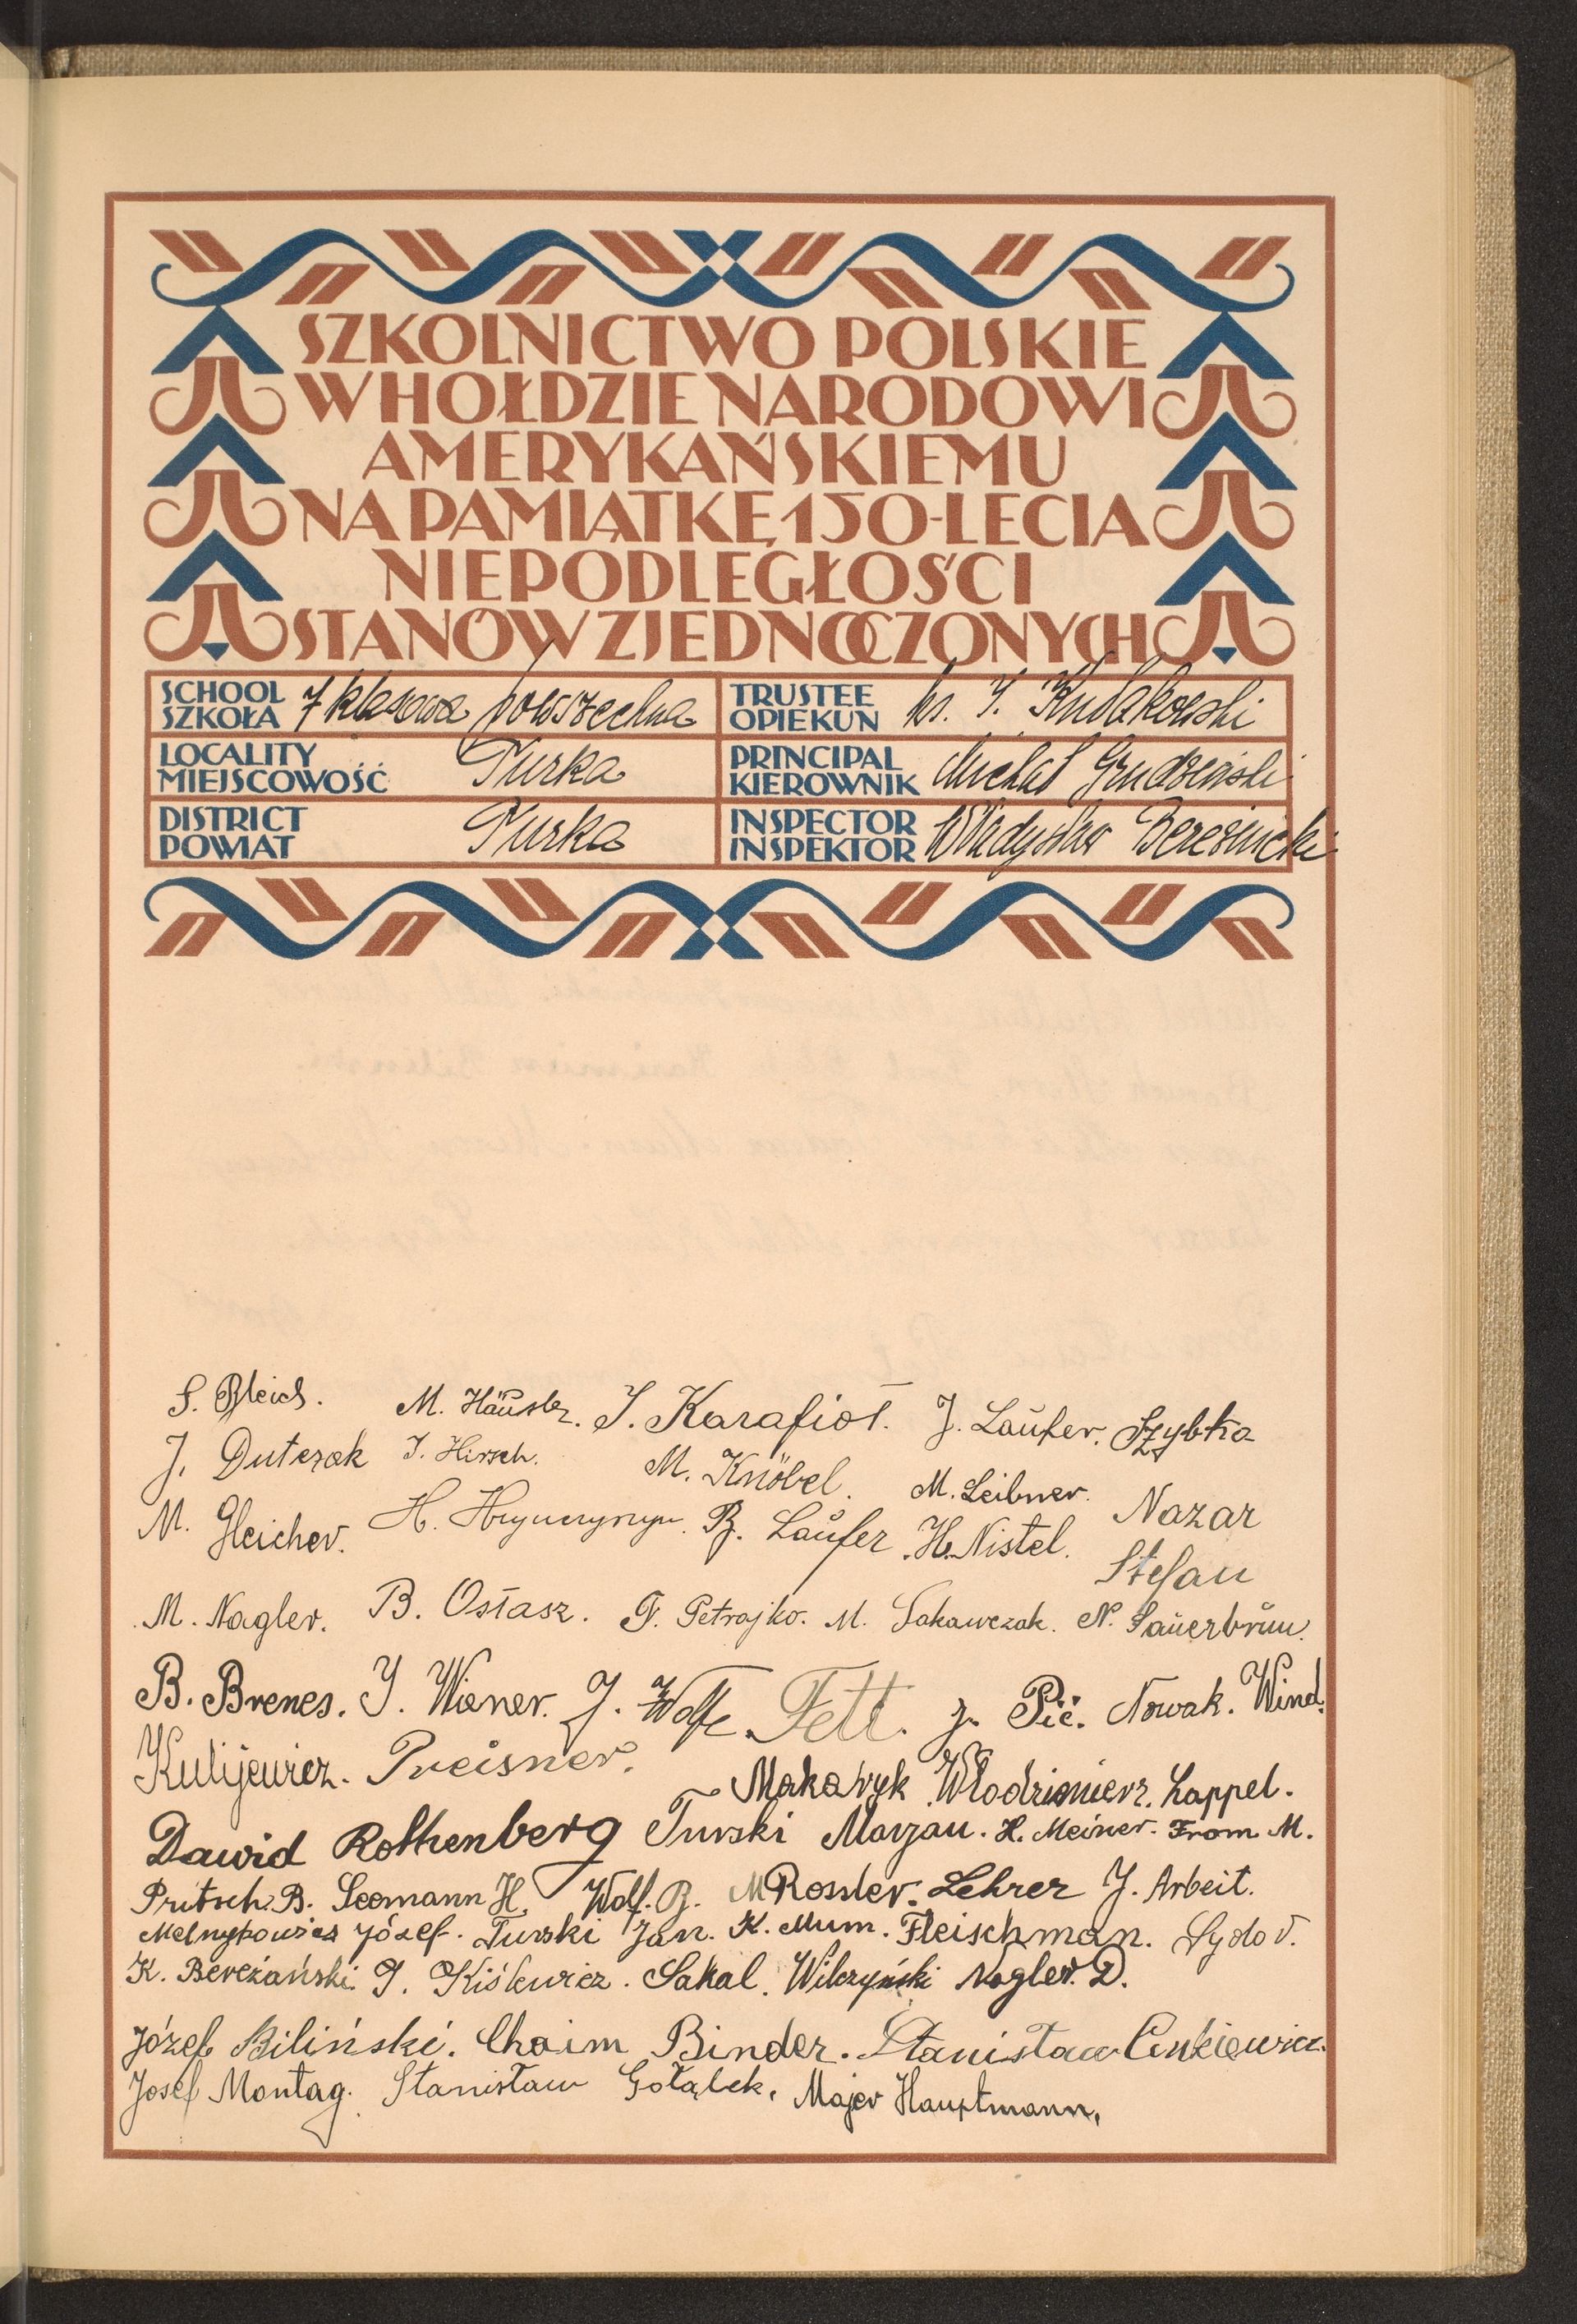 SZKOLNICTWO POLSKIE
W HOŁDZIE NARODOWI
AMERYKAŃSKIEMU
NA PAMIĄTKĘ 150-LECIA
NIEPODLEGŁOŚCI
STANÓW ZJEDNOCZONYCH
SCHOOL
SZKOŁA 7 klasowa powszechna
TRUSTEE
OPIEKUN ks. J. Kułakowski
LOCALITY
MIEJSCOWOŚĆ Turka
PRINCIPAL
KIEROWNIK Michał Grudziński
DISTRICT
POWIAT Turka
INSPECTOR
INSPEKTOR Władysław Bereźnicki
S. Bleich. M. Häusler. J. Karafioł. J. Laŭfer. Szybka
J. Dutczak J. Hirsch. M. Knöbel. M. Leibner. Nazar
M. Gleicher. H. B. Laŭfer H. Nistel. Stefan
M. Nagler. B. Ostasz. F. Petrajko. M. Sakawczak. N. Saŭerbrŭn.
B. Brenes. J. Wiener. J. Wolfe. Fett. J. Pič. Nowak. Wind.
Kulijewicz. Preisner. Makaryk Włodzimierz. Lappel.
Dawid Rothenberg Turski Marjan. H. Meiner. From M.
Pritsch. B. Seemann H. Wolf. B. M Rossler. Lehrer J. Arbeit.
Melnykowicz Józef. Turski Jan. K. Mum. Fleischman. Sydor.
K. Bereżański. J. Kiślewicz. Sakal. Wilczyński Nagler. D.
Józef Biliński. Chaim Binder. Stanisław Cenkiewicz.
Josef Montag. Stanisław Gołąbek. Majer Hauptmann.